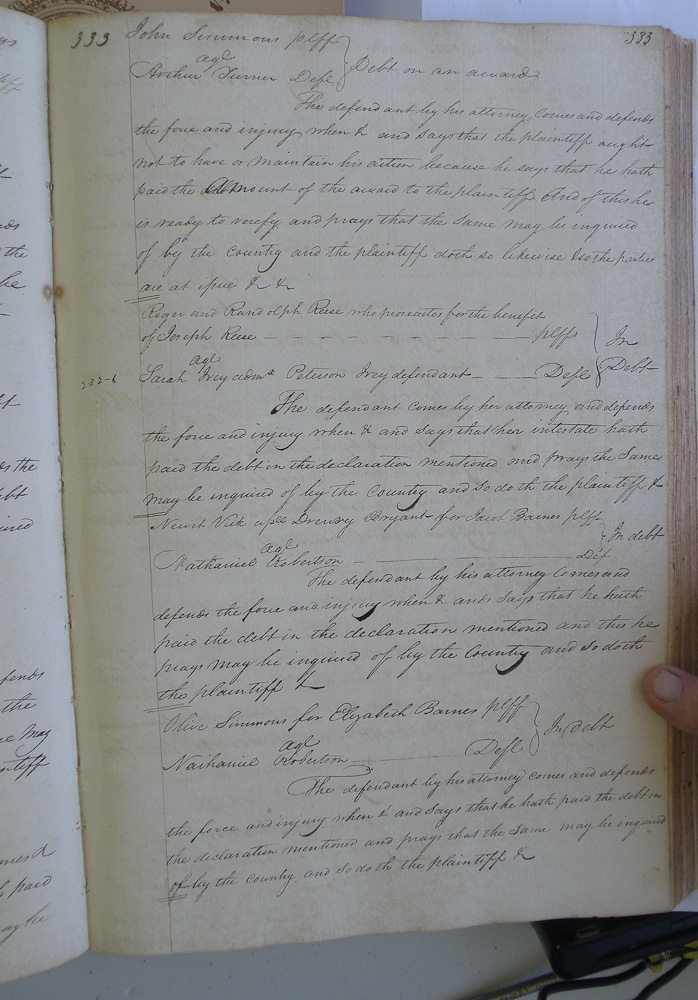 333
333
John Simmons plff
agt
Arthur Turner Deft
Debt on an award
The defendant by his attorney comes and defends
the force and injury when & and says that the plaintiff ought
not to have or maintain his action because he says that he hath
paid the amount of the award to the plaintiff And of this he
is ready to verify and prays that the same may be inquired
of by the Country and the plaintiff doth so likewise & so the parties
are at issue & &
Roger and Randolph Reese who prosecutes for the benefit
of Joseph Reese plffs
agt
Sarah Ivey admx Peterson Ivey defendant Deft
In Debt
The defendant comes by her attorney and defends
the force and injury when & and says that her intestate hath
paid the debt in the declaration mentioned and prays the same
may be inquired of by the Country and so do th the plaintiff &
Drewry Bryant for Jacob Barnes plff
agt
Nathaniel Robertson Def
In debt
The defendant by his attorney comes and
defends the force and injury when & ands says that he hath
paid the debt in the declaration mentioned and this he
prays may be inquired of by the Country and so doth
the plaintiff &
Olive Simmons for Elizabeth Barnes plff
agt
Nathaniel Robertson Deft
In debt
The defendant by his attorney comes and defends
the force and injury when & and says that he hath paid the debt in
the declaration mentioned and prays that the same may be inquired
of by the Country and so do th the plaintiff &